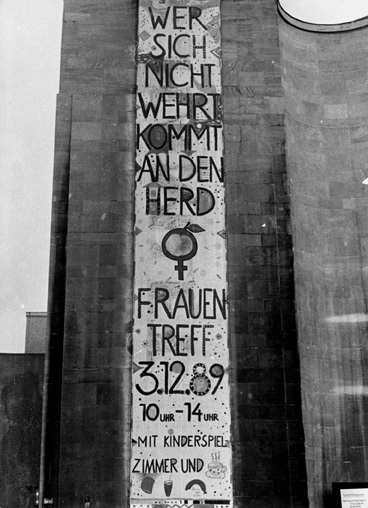 WER
SICH
NICHT
WEHRT
KOMMT
AN DEN
HERD
FRAUEN
TREFF
3.12.89
10 UHR - 14 UHR
MIT KINDERSPIEL-
ZIMMER UND